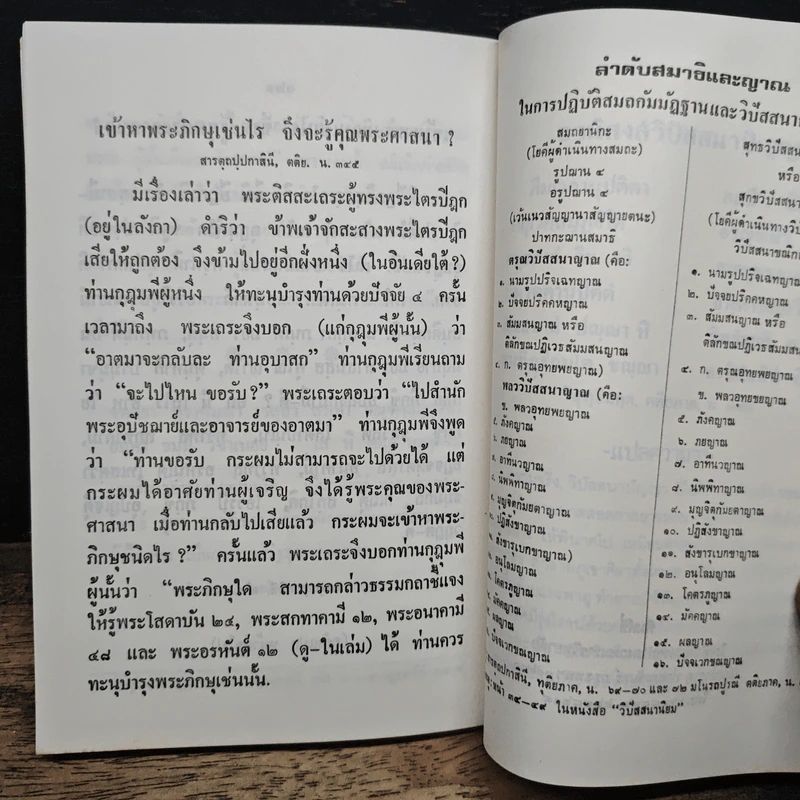 เข้าหาพระภิกษุเช่นไร จึงจะรู้คุณพระศาสนา ?
สารตฺถปฺปกาสินี, ตติย. น. ๓๔๕
มีเรื่องเล่าว่า พระติสสะเถระผู้ทรงพระไตรปิฎก
(อยู่ในลังกา) ดำริว่า ข้าพเจ้าจักสะสางพระไตรปิฎก
เสียให้ถูกต้อง จึงข้ามไปอยู่อีกฝั่งหนึ่ง (ในอินเดียใต้ ?)
ท่านกุฎุมพีผู้หนึ่ง ให้ทะนุบำรุงท่านด้วยปัจจัย ๔ ครั้น
เวลามาถึง พระเถระจึงบอก (แก่กุฎุมพีผู้นั้น) ว่า
“อาตมาจะกลับละ ท่านอุบาสก” ท่านกุฎุมพีเรียนถาม
ว่า “จะไปไหน ขอรับ ?” พระเถระตอบว่า “ไปสำนัก
พระอุปัชฌาย์และอาจารย์ของอาตมา” ท่านกุฎุมพีจึงพูด
ว่า “ท่านขอรับ กระผมไม่สามารถจะไปด้วยได้ แต่
กระผมได้อาศัยท่านผู้เจริญ จึงได้รู้พระคุณของพระ-
ศาสนา เมื่อท่านกลับไปเสียแล้ว กระผมจะเข้าหาพระ-
ภิกษุชนิดไร ?” ครั้นแล้ว พระเถระจึงบอกท่านกุฎุมพี
ผู้นั้นว่า “พระภิกษุใด สามารถกล่าวธรรมกถาชี้แจง
ให้รู้พระโสดาบัน ๒๔, พระสกทาคามี ๑๒, พระอนาคามี
๔๘ และ พระอรหันต์ ๑๒ (ดู-ในเล่ม) ได้ ท่านควร
ทะนุบำรุงพระภิกษุเช่นนั้น.
ลำดับสมาธิและญาณ
ในการปฏิบัติสมถกัมมัฏฐานและวิปัสสนา
สมถยานิกะ
(โยคีผู้ดำเนินทางสมถะ)
รูปฌาน ๔
อรูปฌาน ๔
(เว้นเนวสัญญานาสัญญายตนะ)
ปาทกะฌานสมาธิ
ตรุณวิปัสสนาญาณ (คือ:
นามรูปปริจเฉทญาณ
ปัจจยปริคคหญาณ
สัมมสนญาณ หรือ
ติลักขณปฏิเวธสัมมสนญาณ
ก. ตรุณอุทยพยญาณ
พลววิปัสสนาญาณ (คือ:
ข. พลวอุทยพยญาณ
ภังคญาณ
ภยญาณ
อาทีนวญาณ
นิพพิทาญาณ
มุญจิตุกัมยตาญาณ
ปฏิสังขาญาณ
สังขารุเบกขาญาณ)
อนุโลมญาณ
โคตรภูญาณ
มัคคญาณ
ผลญาณ
ปัจจเวกขณญาณ
สุทธวิปัสสนา
หรือ
สุกขวิปัสสนา
(โยคีผู้ดำเนินทางวิ
วิปัสสนาขณิก
๑. นามรูปปริจเฉทญาณ
๒. ปัจจยปริคคหญาณ
๓. สัมมสนญาณ หรือ
ติลักขณปฏิเวธสัมมสน
๔. ก. ตรุณอุทยพยญาณ
ข. พลวอุทยพยญาณ
๕. ภังคญาณ
๖. ภยญาณ
๗. อาทีนวญาณ
๘. นิพพิทาญาณ
๙. มุญจิตุกัมยตาญาณ
๑๐. ปฏิสังขาญาณ
๑๑. สังขารุเบกขาญาณ
๑๒. อนุโลมญาณ
๑๓. โคตรภูญาณ
๑๔. มัคคญาณ
๑๕. ผลญาณ
๑๖. ปัจจเวกขณญาณ
ทุติยภาค, น. ๖๙-๗๐ และ ๗๒ มโนรถปูรณี ตติยภาค, น.
หน้า ๓๕-๔๙ ในหนังสือ “วิปัสสนานิยม”